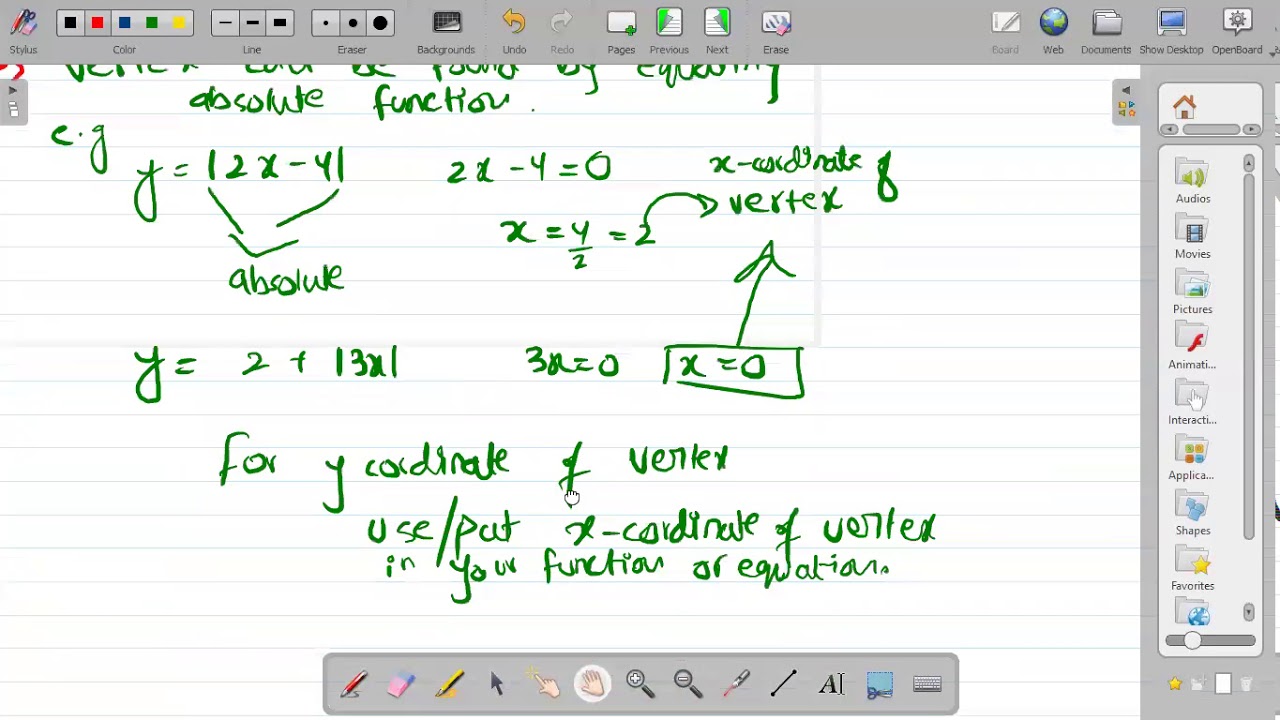 Stylus Color Line Eraser Backgrounds Undo Redo Pages Previous Next Erase Board Web Documents Show Desktop OpenBoard
vertex can be found by equating
absolute function.
e.g
y = |2x-4| 2x-4=0 x-cordinate of
vertex
x = 4/2 = 2
absolute
y = 2 + |3x| 3x=0 x=0
For y cordinate of vertex
use/put x-cordinate of vertex
in your function or equation.
Audios
Movies
Pictures
Animati...
Interacti...
Applica...
Shapes
Favorites